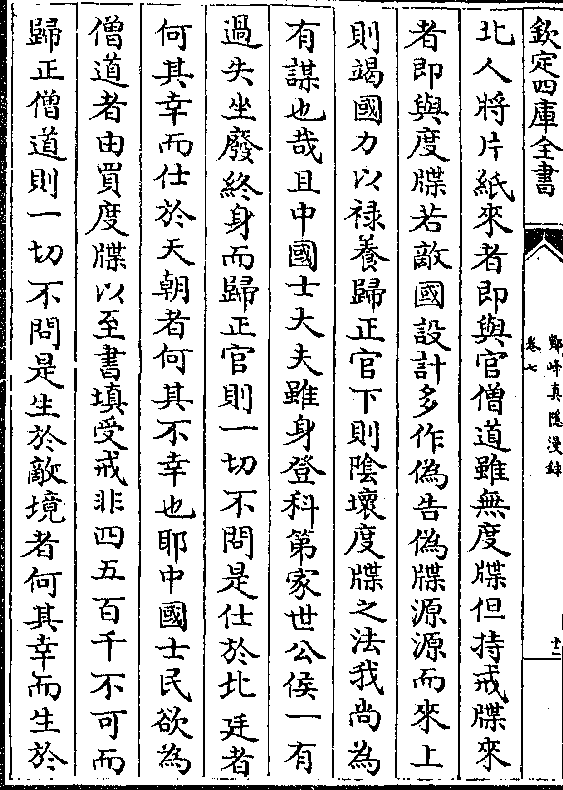 欽定四庫全書
鄮峰真隱漫録
卷七
十二
北人將片紙來者即與官僧道雖無度牒但持戒牒來
者即與度牒若敵國設計多作偽告偽牒源源而來上
則竭國力以禄養歸正官下則陰壞度牒之法我尚為
有謀也哉且中國士大夫雖身登科第家世公侯一有
過失坐廢終身而歸正官則一切不問是仕於北廷者
何其幸而仕於天朝者何其不幸也耶中國士民欲為
僧道者由買度牒以至書填受戒非四五百千不可而
歸正僧道則一切不問是生於敵境者何其幸而生於